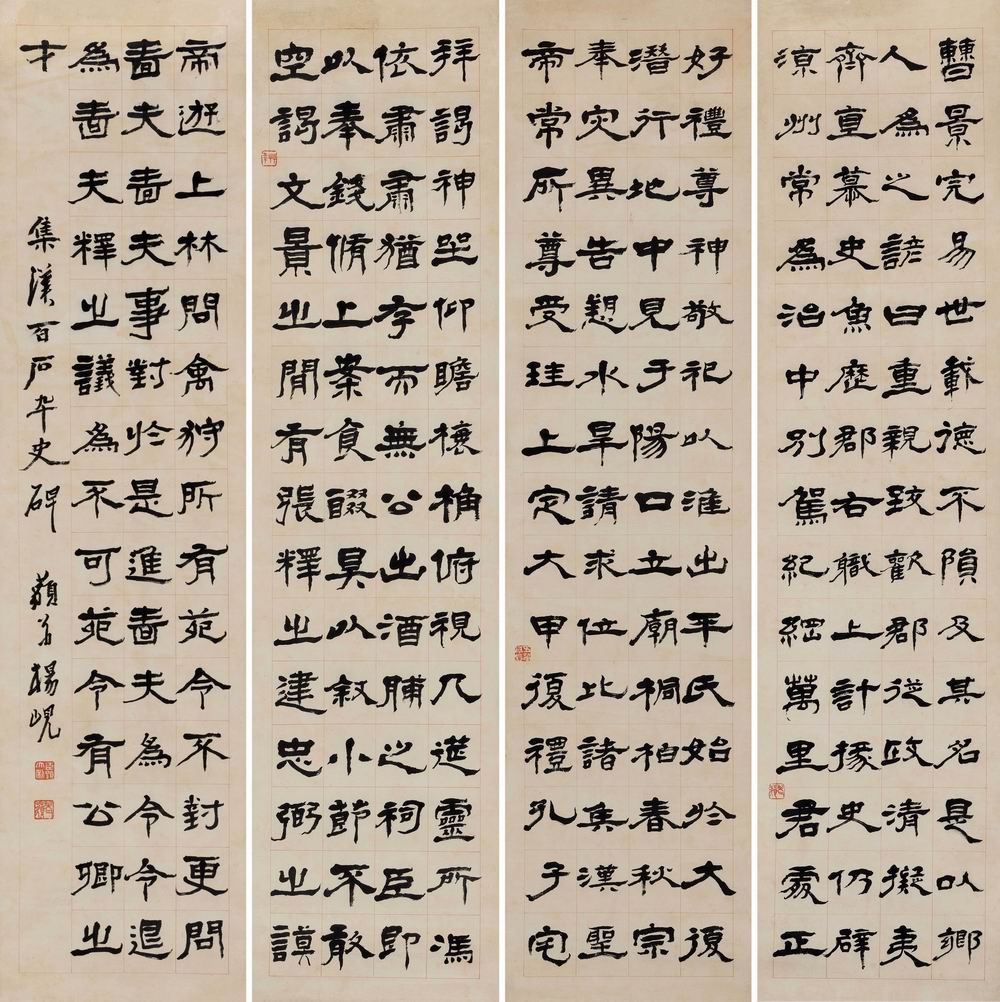 曹景完易世載德不隕及其名是以鄉
人為之諺曰重親致歡郡從政清擬夷
齊直慕史魚歷郡右職上計掾史仍辟
涼州常為治中別駕紀綱萬里君處正
好禮尊神敬祀以淮出平氏始於大復
潛行地中見于陽口立廟桐柏春秋宗
奉灾異告愬水旱請求位比諸侯漢聖
帝常所尊受珪上定大甲復禮孔子宅
拜謁神坐仰瞻榱桷俯視几筵靈所馮
依肅肅猶存而無公出酒脯之祠臣即
以奉錢脩上案食醊具以敘小節不敢
空謁文景之間有張釋之建忠弼之謨
帝遊上林問禽狩所有苑令不對更問
嗇夫嗇夫事對於是進嗇夫為令令退
為嗇夫釋之議為不可苑令有公卿之
才
集漢百石卒史碑 藐翁楊峴